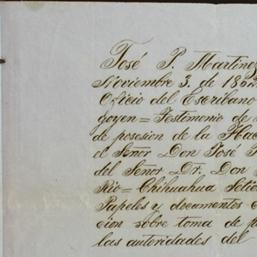 José P. Martinez
Noviembre 3. de 186
Oficio del Escribano
goyen = Testimonio de
de posesion de la Plac
el Señor Don José
del Señor Dr. Don
Rio = Chihuahua Solic
Papeles y documentos
cion sobre toma de p
las autoridades del